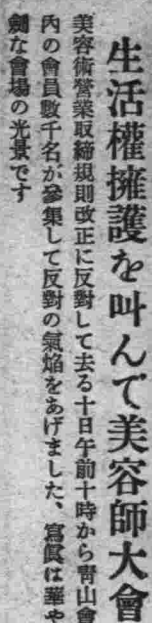 生活權擁護を叫んで美容師大會
美容術營業取締規則改正に反對して去る十日午前十時から靑山會
內の會員數千名が參集して反對の氣焰をあげました、寫眞は華や
かな會場の光景です